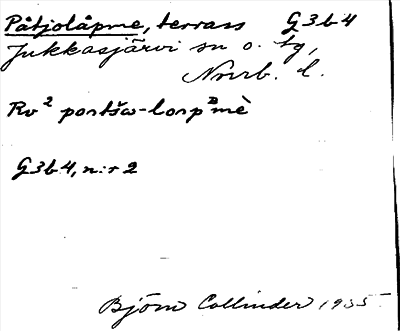 Påtjolåpme, terrass G3b4
Jukkasjärvi sn o. tg,
Nrrb. l.
Rv² portšω-lorpᴮmè
G3b4, n:r 2
Björn Collinder 1935